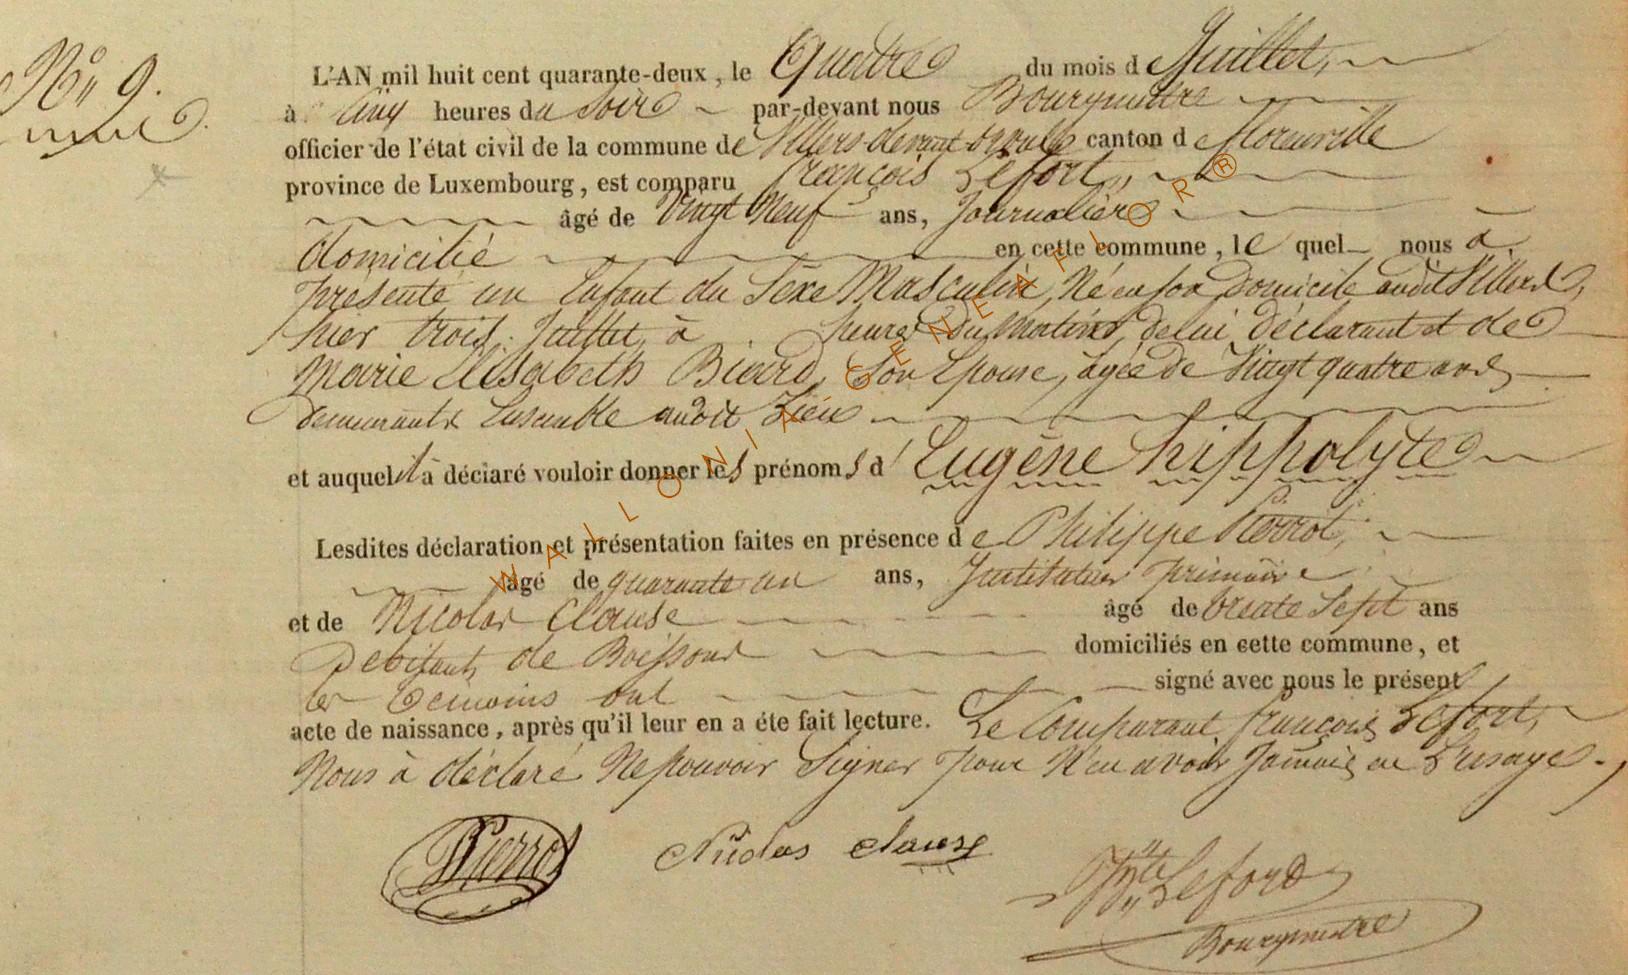 N° 9.
L'AN mil huit cent quarante-deux, le Quatre du mois de Juillet,
à Cinq heures du Soir par-devant nous Bourgmestre
officier de l'état civil de la commune de Villers devant orval canton de florenville
province de Luxembourg, est comparu françois Lefort,
âgé de Vingt Neuf ans, Journalier
domicilié en cette commune, le quel nous à
présenté un Enfant du Sexe Masculin, Né en son Domicile audit Villers,
hier trois Juillet, à heures du matin, de lui déclarant et de
Marie Elisabeth Biard, Son Epouse, agée de Vingt quatre ans
demeurants Ensemble audit Lieu
et auquel il à déclaré vouloir donner les prénoms d' Eugène hippolyte
Lesdites déclaration et présentation faites en présence de Philippe Pierrot,
âgé de quarante un ans, Instituteur primaire
et de Nicolas Clause âgé de trente Sept ans
Debitant de Boissons domiciliés en cette commune, et
les temoins ont signé avec nous le présent
acte de naissance, après qu'il leur en a éte fait lecture. Le Comparant françois Lefort,
Nous à déclaré Ne pouvoir Signer pour N'en avoir Jamais eu L'usage.
Pierrot Nicolas clause
Leford
Bourgmestre
WALLONIA GENEAFLOR ®